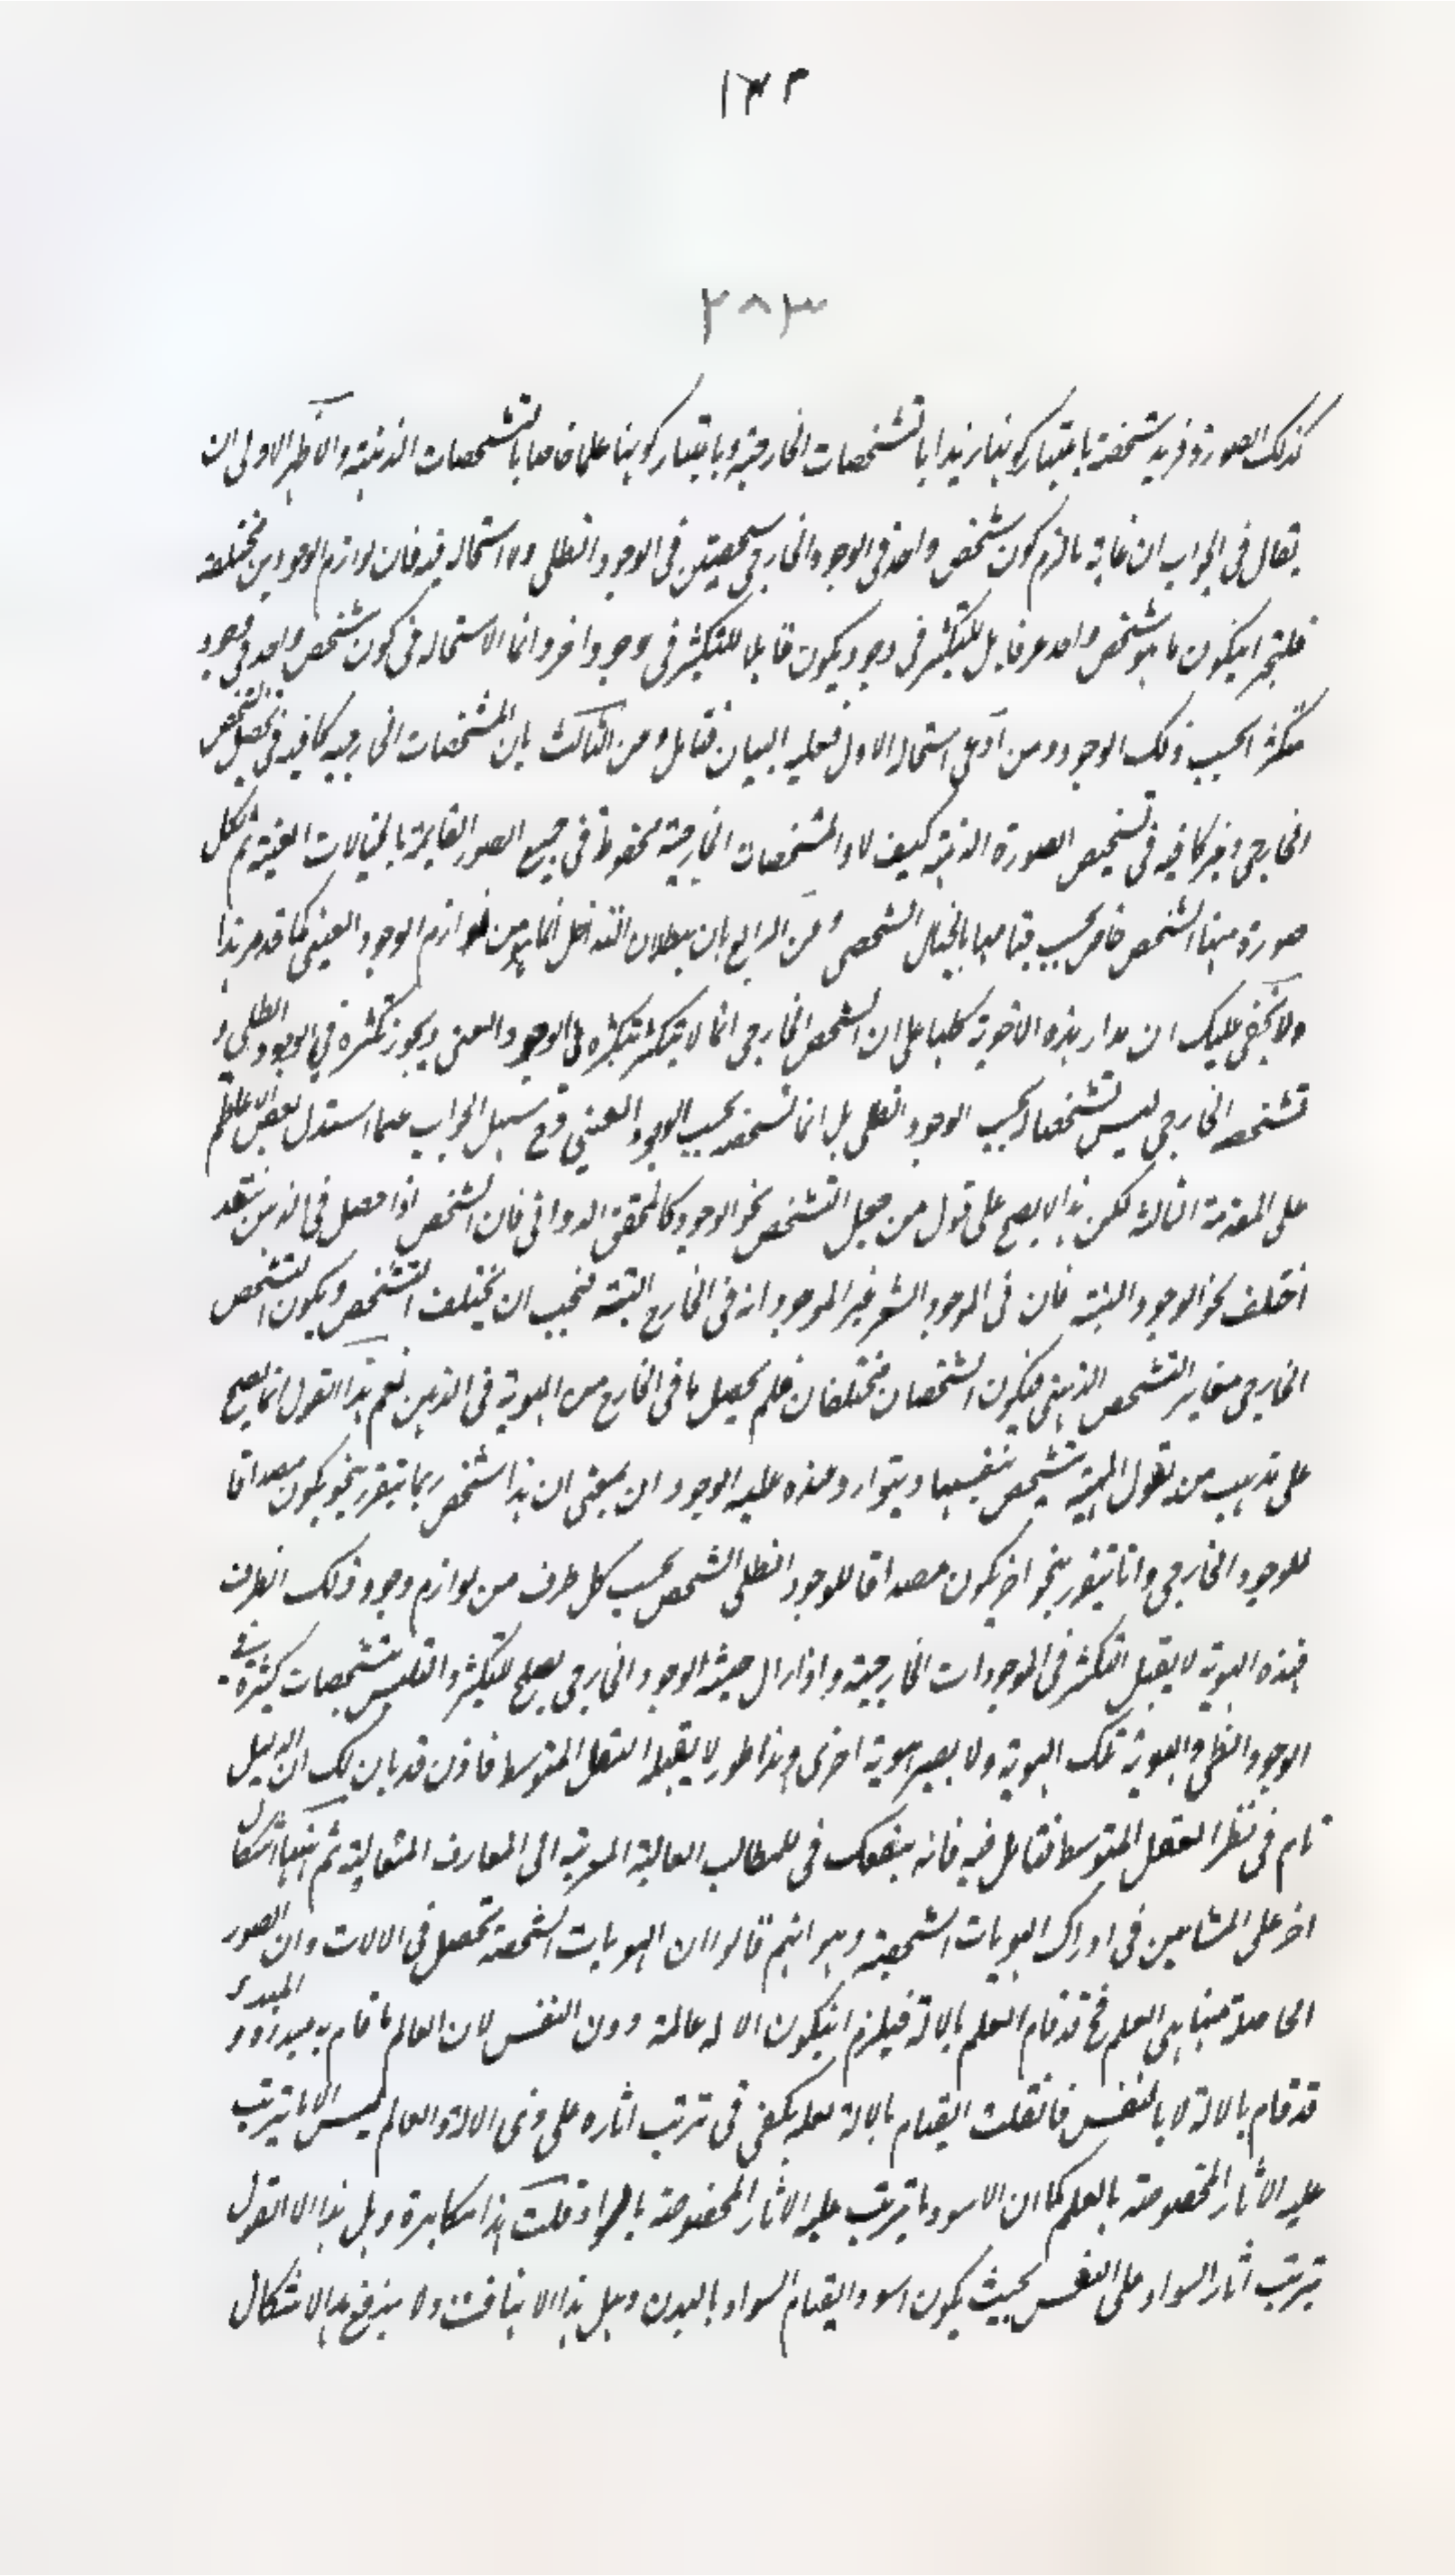 ١٣٢
٢٨٣
كذلك الصورة فزيد شخصة باعتبار كونها زيدا بالتشخصات الخارجية وباعتبار كونها علما خاصا بالتشخصات الذهنية والاظهر الاولى ان
يقال في الجواب ان غاية ما لزم كون شخص واحد في الوجود الخارجي شخصيتين في الوجود الظلي ولا استحالة فيه فان لوازم الوجودين مختلفة
فليجز ان يكون ما هو شخص واحد غير قابل للتكثر في وجود يكون قابلا للتكثر في وجود اخر وانما الاستحالة في كون شخص واحد في وجود
متكثرا بحسب ذلك الوجود ومن ادعى استحالة الاول فعليه البيان فتامل ومن الثالث بان المشخصات الخارجية كافية في تحصل الشخص
الخارجي وغير كافية في تشخيص الصورة الذهنية كيف لا والمشخصات الخارجية محفوظة في جميع الصور القايمة بالخيالات العينية ثم لكل
صورة منها تشخص خاص بحسب قيامها بالخيال الشخصي ومن الرابع بان بطلان التداخل انما هو من لوازم الوجود العيني كما قد مر هذا
ولا يخفى عليك ان مدار هذه الاجوبة كلها على ان الشخص الخارجي انما لا يتكثر بتكثره في الوجود العيني ويجوز تكثره في الوجود الظلي و
تشخصه الخارجي ليس تشخصا بحسب الوجود الظلي بل انما تشخصه بحسب الوجود العيني وح سهل الجواب عما استدل بعض الاعاظم
على المقدمة الثالثة لكن هذا لا يصح على قول من جعل التشخص نحو الوجود كالمحقق الدواني فان الشخص اذا حصل في الذهن فقد
اختلف نحو الوجود البتة فان في الوجود الشرعي غير الموجود انه في الخارج البتة فيجب ان يختلف التشخص ويكون التشخص
الخارجي مغاير التشخص الذهني فيكون الشخصان مختلفان فلم يحصل ما في الخارج من الهوية في الذهن نعم هذا القول انما يصح
على مذهب من يقول المهية تشخص بنفسها ويتوارد عنده عليه الوجودان بمعنى ان هذا الشخص ربما يتقرر بنحو يكون مصداقا
للوجود الخارجي وانا يتقرر بنحو اخر يكون مصداقا للوجود الظلي الشخص بحسب كل ظرف من لوازم وجود ذلك الظرف
فهذه الهوية لا يقبل التكثر في الموجودات الخارجية واذا زال حيثية الوجود الخارجي يصلح للتكثر والتلبس بتشخصات كثيرة في
الوجود الظلي والهوية تلك الهوية ولا يصير هوية اخرى وهذا طور لا يقبله العقل المتوسط فاذن قد بان لك ان الدليل
تام في نظر العقل المتوسط فتامل فيه فانه ينفعك في المطالب العالية الموربة الى المعارف المتعالية ثم ههنا اشكال
اخر على المشايين في ادراك الهويات الشخصية وهو انهم قالوا ان الهويات الشخصية تحصل في الالات وان الصور
الحاصلة منها هي العلم فح قد قام العلم بالالة فيلزم ان يكون الالة عالمة دون النفس لان العالم ما قام به مبدءه والمبدء
قد قام بالالة لا بالنفس فانقلت القيام بالالة لعله يكفي في ترتب اثاره على ذي الالة والعالم ليس الا ما يترتب
عليه الاثار المخصوصة بالعلم كما ان الاسود ما يترتب عليه الاثار المخصوصة بالسواد قلت هذا مكابرة وهل هذا الا القول
بترتب اثار السواد على النفس بحيث يكون اسود القيام السواد بالبدن وهل هذا الا يتهافت ولا يندفع هذا الاشكال